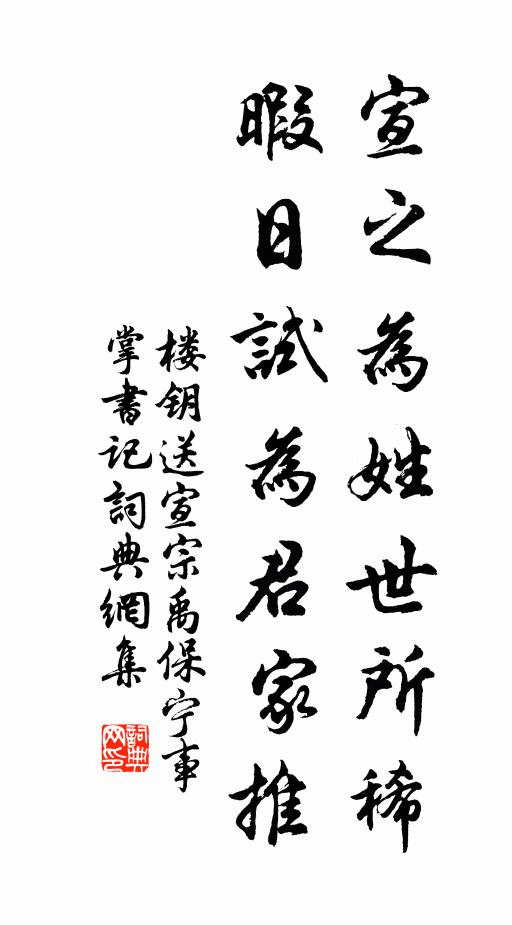 宣之為姓世所稀
暇日試為君家推
楼钥送宣宗禹保宁事
掌書記詞典網集
詞典
网印